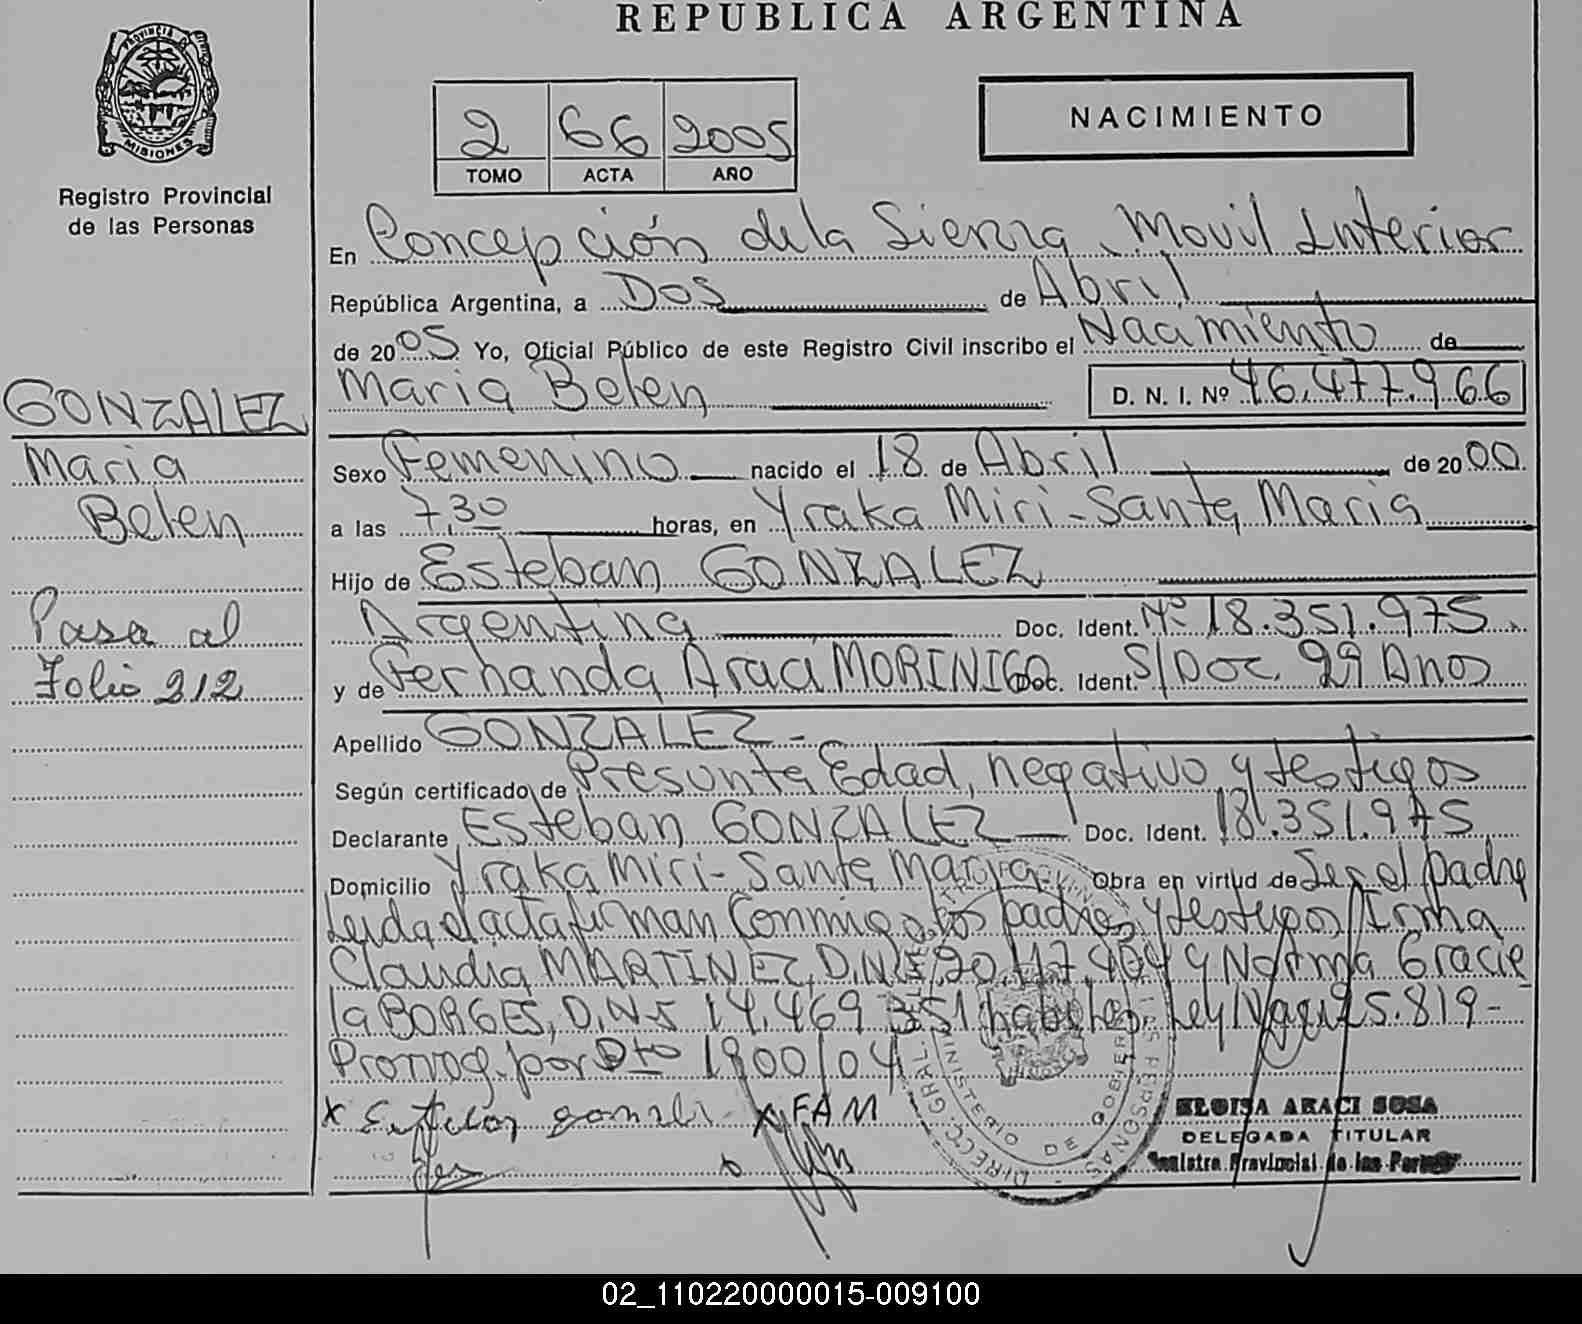 REPUBLICA ARGENTINA
PROVINCIA DE
MISIONES
Registro Provincial
de las Personas
2 66 2005
TOMO ACTA AÑO
NACIMIENTO
En Concepción de la Sierra, Movil Interior
República Argentina, a Dos de Abril
de 2005 Yo, Oficial Público de este Registro Civil inscribo el Nacimiento de
Maria Belen D. N. I. Nº 46.477.966
GONZALEZ
Maria
Belen
Pasa al
Folio 212
Sexo Femenino nacido el 18 de Abril de 2000
a las 7,30 horas, en Yraka Miri - Santa Maria
Hijo de Esteban GONZALEZ
Argentina Doc. Ident. Nº 18.351.975
y de Fernanda Araci MORINIGO Doc. Ident. S/Doc. 29 Anos
Apellido GONZALEZ -
Según certificado de Presunta Edad, negativo y testigos
Declarante Esteban GONZALEZ Doc. Ident. 18.351.975
Domicilio Yraka Miri - Santa Maria Obra en virtud de Ser el padre
Leida el acta firman Conmigo los padres y testigos Irma
Claudia MARTINEZ, D.N.I. 20.117.404 y Norma Gracie
la BORGES, D.N.I 14.469 351 habiles. Ley 25.819-
Prorrog. por Dto 1900/04
x x FAM
ELOISA ARACI SOSA
DELEGADA TITULAR
Registro Provincial de las Personas
MINISTERIO DE GOBIERNO
02_110220000015-009100